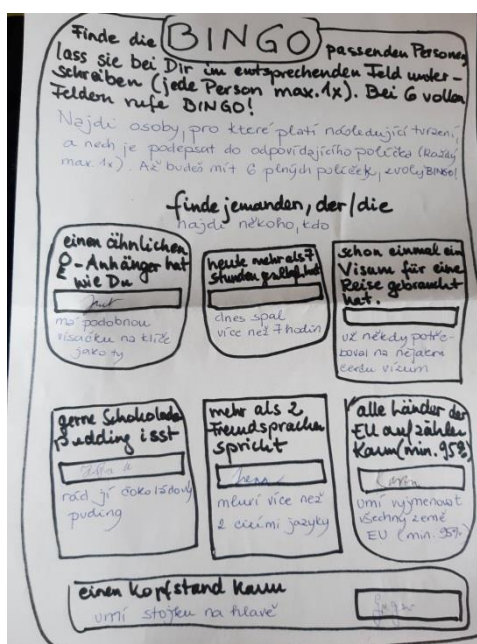 Finde die BINGO passenden Personen,
lass sie bei Dir im entsprechenden Feld unter-
schreiben (jede Person max. 1x). Bei 6 vollen
Feldern rufe BINGO!
Najdi osoby, pro které platí následující tvrzení,
a nech je podepsat do odpovídajícího políčka (každý
max. 1x). Až budeš mít 6 plných políček, zvolej BINGO!
finde jemanden, der/die
najdi někoho, kdo
einen ähnlichen
-Anhänger hat
wie Du
má podobnou
visačku na klíče
jako ty
heute mehr als 7
Stunden
dnes spal
více než 7 hodin
schon einmal ein
Visum für eine
Reise gebraucht
hat.
už někdy potře-
boval na nějakou
cestu vízum
gerne Schokoladen
pudding isst
rád jí čokoládový
puding
mehr als 2
Fremdsprachen
spricht
mluví více než
2 cizími jazyky
alle Länder der
EU aufzählen
kann (min. 95%)
umí vyjmenovat
všechny země
EU (min. 95%)
einen Kopfstand kann
umí stojku na hlavě